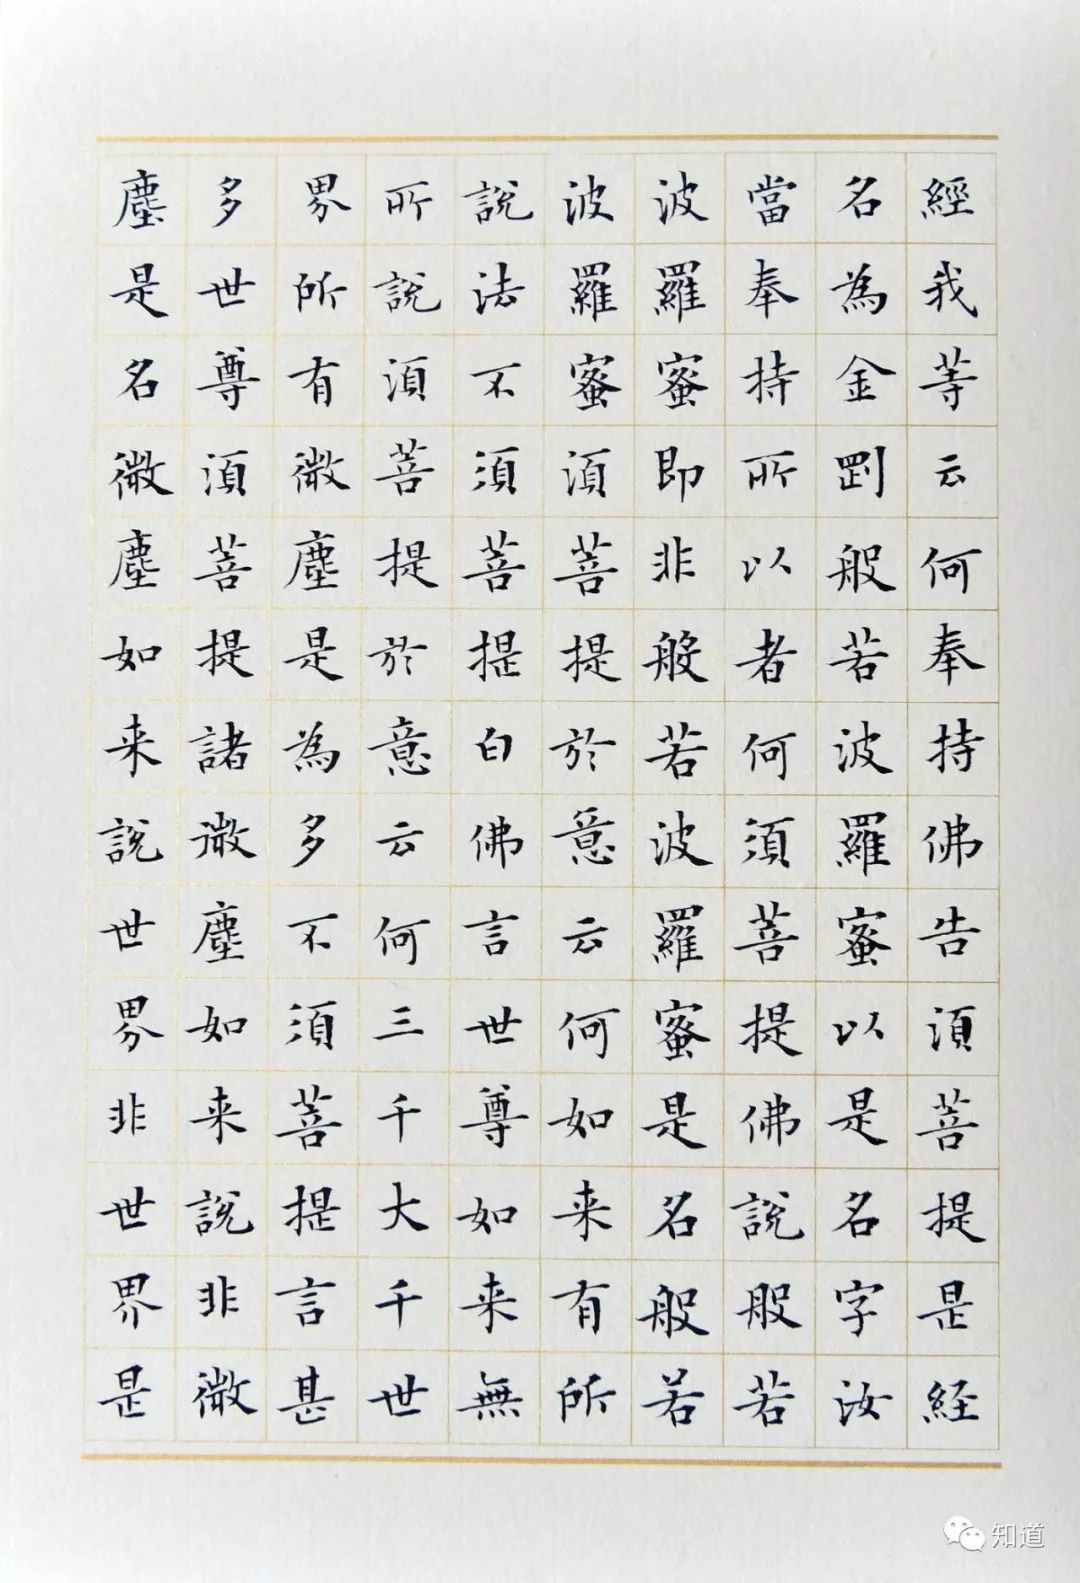 經我等云何奉持佛告須菩提是経
名為金剛般若波羅蜜以是名字汝
當奉持所以者何須菩提佛說般若
波羅蜜即非般若波羅蜜是名般若
波羅蜜須菩提於意云何如来有所
說法不須菩提白佛言世尊如来無
所說須菩提於意云何三千大千世
界所有微塵是為多不須菩提言甚
多世尊須菩提諸微塵如来說非微
塵是名微塵如来說世界非世界是
知道